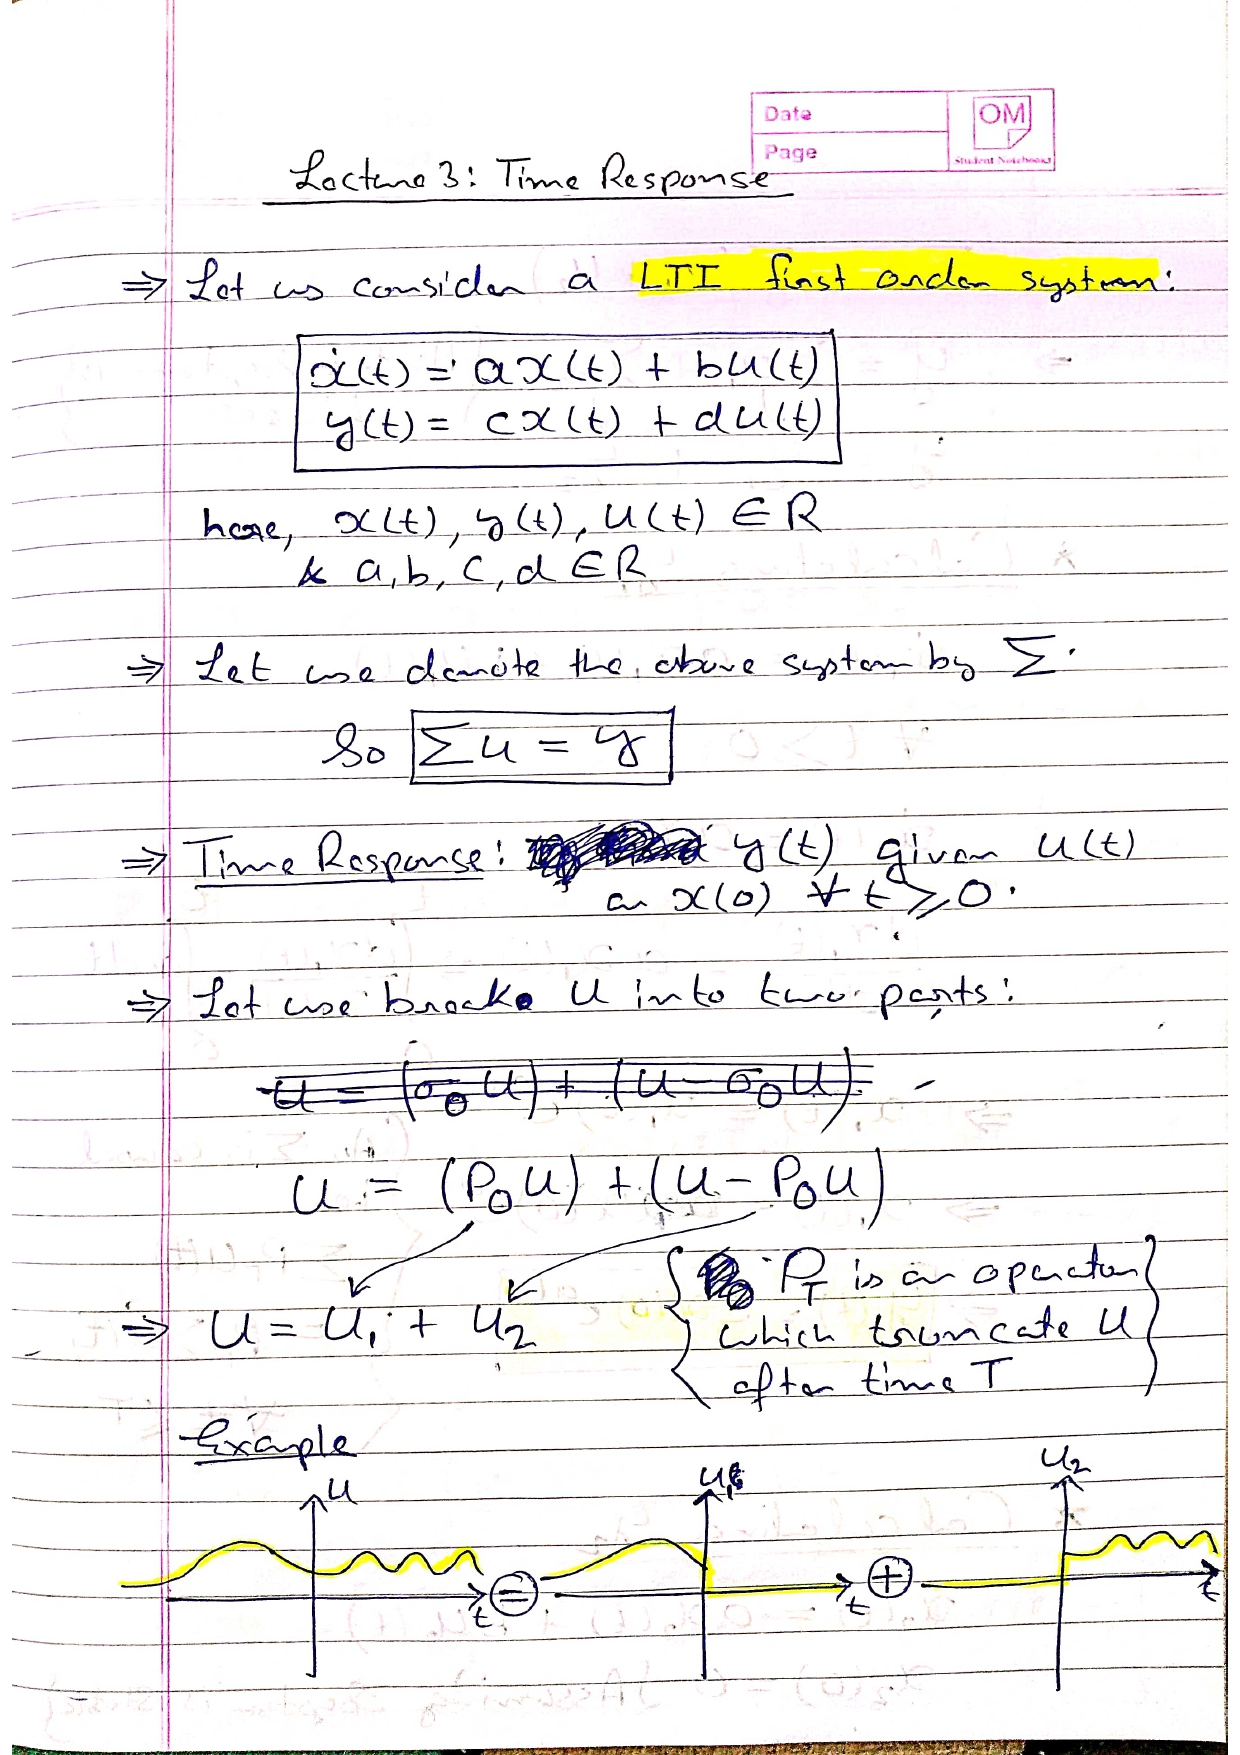 Date
OM
Page
Student Notebooks
Lecture 3: Time Response
⇒ Let us consider a LTI first order system:
ẋ(t) = ax(t) + bu(t)
y(t) = cx(t) + du(t)
here, x(t), y(t), u(t) ∈ R
& a, b, c, d ∈ R
⇒ Let use denote the above system by Σ.
So Σu = y
⇒ Time Response: y(t) given u(t)
an x(0) ∀ t ⩾ 0.
⇒ Let use break u into two parts:
u = (σ₀u) + (u - σ₀u)
u = (P₀u) + (u - P₀u)
{ P_T is an operator
⇒ u = u₁ + u₂ which truncate u
after time T }
Example
u
u₁
u₂
t = t + t